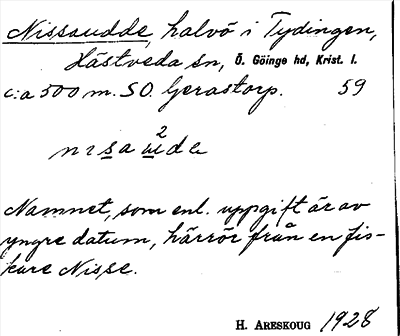 Nissaudde, halvö i Tydingen,
Hästveda sn, Ö. Göinge hd, Krist. l.
c:a 500 m. S.O. Gerastorp. 59
2
Namnet, som enl. uppgift är av
yngre datum, härrör från en fis-
kare Nisse.
H. ARESKOUG 1928